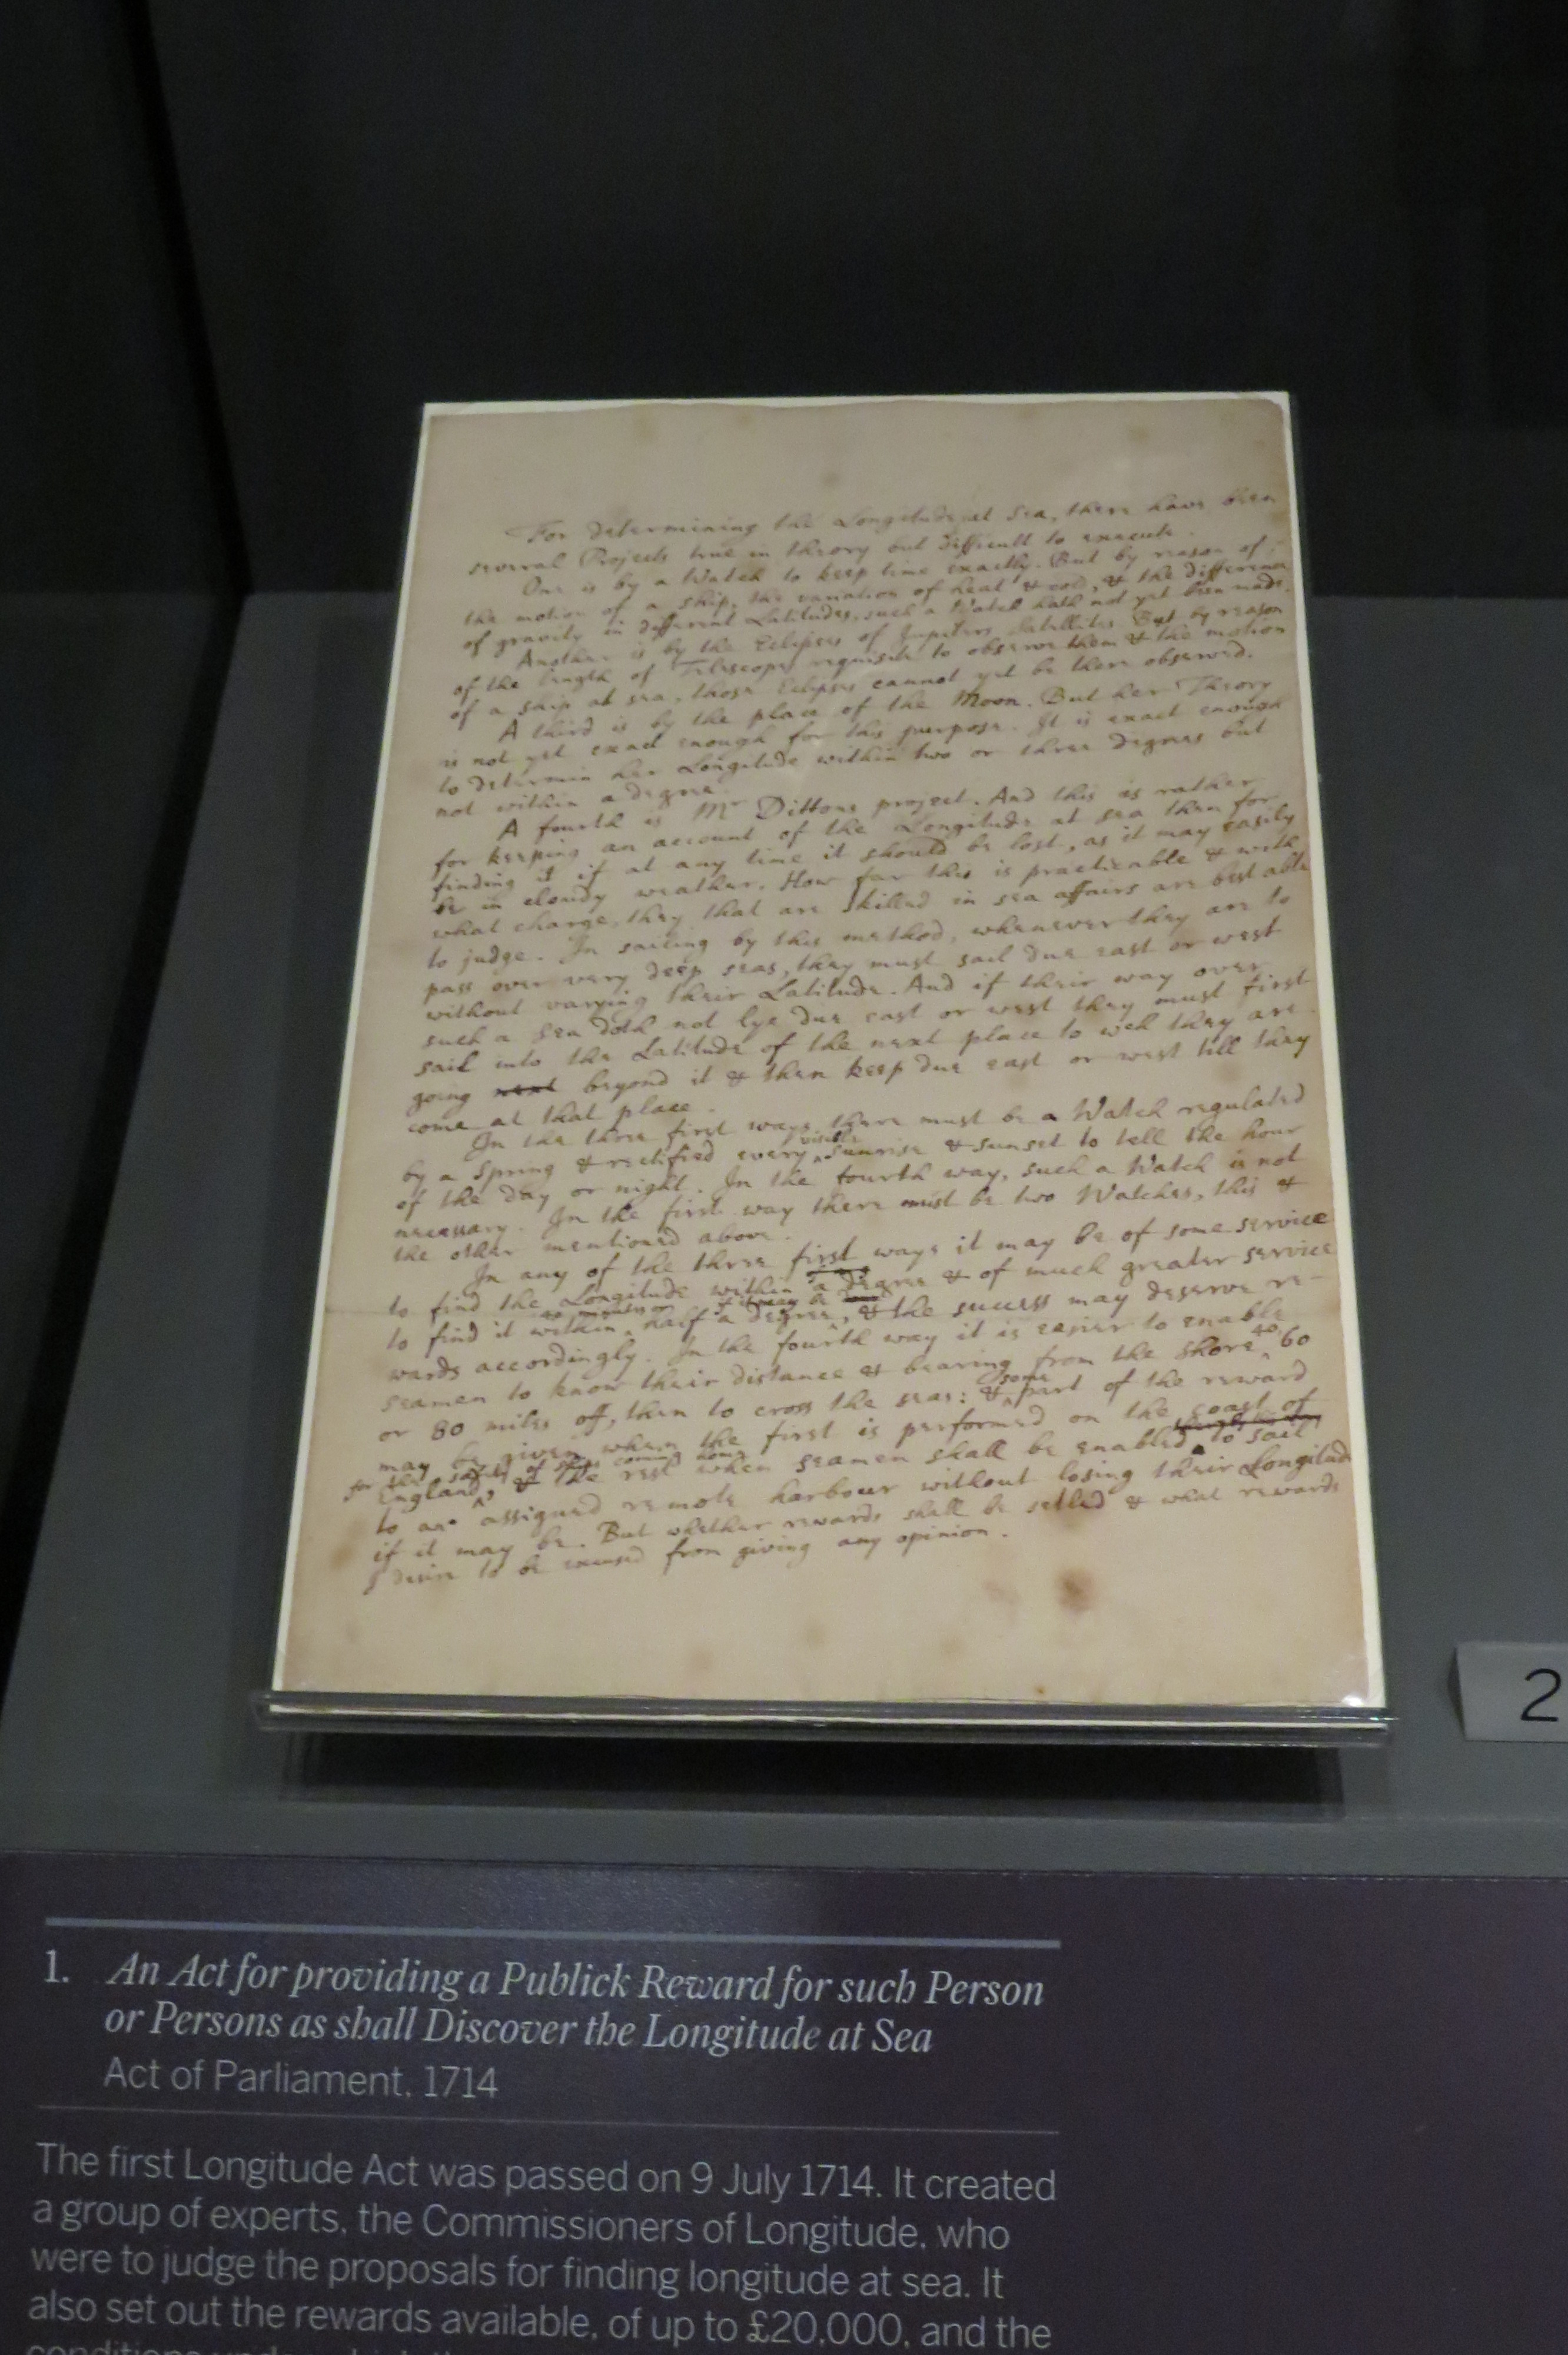 For determining the Longitude at Sea, there have been
several Projects true in theory but difficult to execute.
One is by a Watch to keep time exactly. But by reason of
the motion of a ship, the variation of heat & cold, & the difference
of gravity in different Latitudes, such a Watch hath not yet been made.
Another is by the Eclipses of Jupiters Satellites. But by reason
of the length of Telescopes requisite to observe them & the motion
of a ship at sea, those Eclipses cannot yet be there observed.
A third is by the place of the Moon. But her Theory
is not yet exact enough for this purpose. It is exact enough
to determin her Longitude within two or three degrees but
not within a degree.
A fourth is Mr Dittons project. And this is rather
for keeping an account of the Longitude at sea then for
finding it if at any time it should be lost, as it may easily
be in cloudy weather. How far this is practicable & with
what charge, they that are skilled in sea affairs are best able
to judge. In sailing by this method, whenever they are to
pass over very deep seas, they must sail due east or west
without varying their Latitude. And if their way over
such a sea doth not lye due east or west they must first
sail into the Latitude of the next place to wch they are
going next beyond it & then keep due east or west till they
come at that place.
In the three first ways there must be a Watch regulated
by a Spring & rectified every visible sunrise & sunset to tell the hour
of the day or night. In the fourth way, such a Watch is not
necessary. In the first way there must be two Watches, this &
the other mentioned above.
In any of the three first ways it may be of some service
to find the Longitude within a degree & of much greater service
to find it within 40 minutes or half a degree if it may be, & the success may deserve re-
wards accordingly. In the fourth way it is easier to enable
seamen to know their distance & bearing from the shore 40, 60
or 80 miles off, then to cross the seas: & some part of the reward
may be given when the first is performed on the coast of
England, for the safety of ships coming home, & the rest when seamen shall be enabled to sail
to an assigned remote harbour without losing their Longitude
if it may be. But whether rewards shall be setled & what rewards
I desire to be excused from giving any opinion.
2
1. An Act for providing a Publick Reward for such Person
or Persons as shall Discover the Longitude at Sea
Act of Parliament, 1714
The first Longitude Act was passed on 9 July 1714. It created
a group of experts, the Commissioners of Longitude, who
were to judge the proposals for finding longitude at sea. It
also set out the rewards available, of up to £20,000, and the
conditions under which